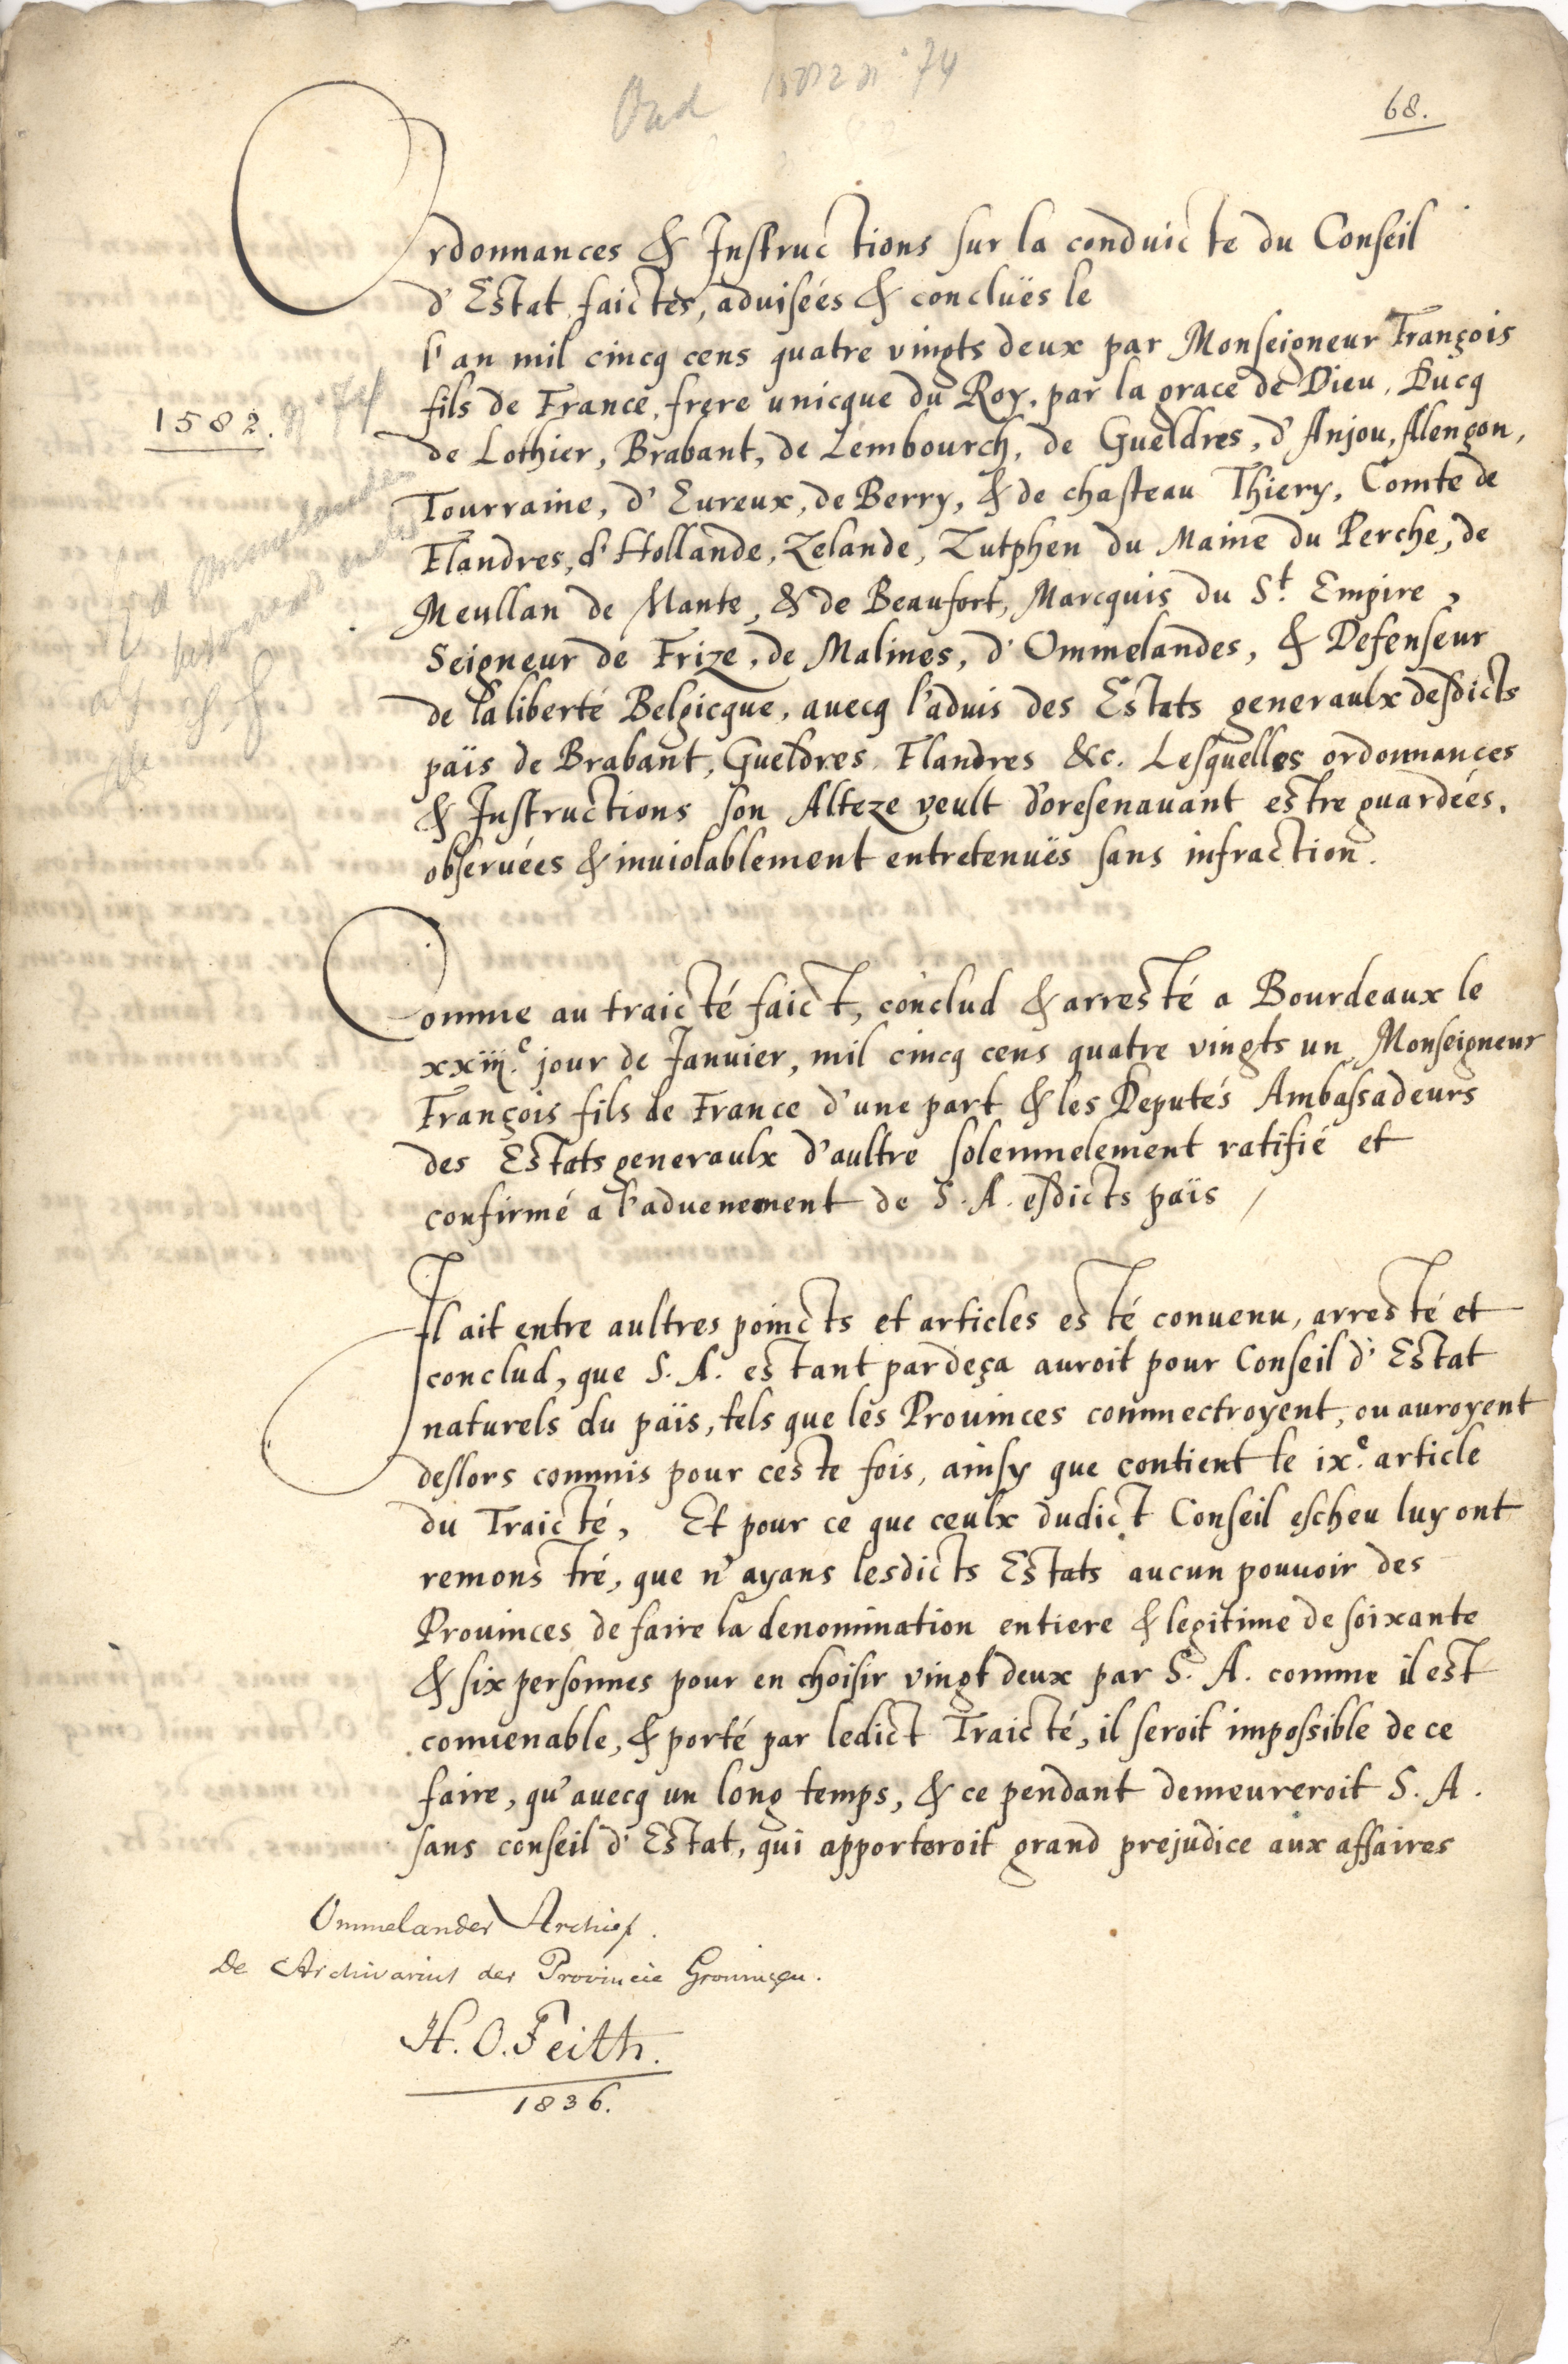 Oud 1582 n° 74
68.
Ordonnances & Instructions sur la conduicte du Conseil
d'Estat faictes, aduiseés & concluës le
l'an mil cincq cens quatre vingts deux par Monseigneur François
fils de France, frere unicque du Roy, par la grace de Dieu, Ducq
1582. n° 74
de Lothier, Brabant, de Lembourch, de Gueldres, d'Anjou, Alençon,
Tourraine, d'Eureux, de Berry, & de chasteau Thiery, Comte de
Flandres, d'Hollande, Zelande, Zutphen du Maine du Perche, de
Meullan de Mante, & de Beaufort, Marcquis du St. Empire,
Seigneur de Frize, de Malines, d'Ommelandes, & Defenseur
de la liberté Belgicque, auecq l'aduis des Estats generaulx desdicts
païs de Brabant, Gueldres, Flandres &c. Lesquelles ordonnances
& Instructions son Alteze veult d'oresenauant estre guardeés,
obseruées & inuiolablement entretenuës sans infraction.
Comme au traicté faict, conclud & arresté a Bourdeaux le
xxiij.e jour de Januier, mil cincq cens quatre vingts un, Monseigneur
François fils de France d'une part & les Deputés Ambassadeurs
des Estats generaulx d'aultre solemnelement ratifié et
confirmé a l'aduenement de S. A. esdicts païs /
Il ait entre aultres poincts et articles esté conuenu, arresté et
conclud, que S. A. estant pardeça auroit pour Conseil d'Estat
naturels du païs, tels que les Prouinces commectroyent, ou auroyent
deslors commis pour ceste fois, ainsy que contient le ix.e article
du Traicté, Et pour ce que ceulx dudict Conseil escheu luy ont
remonstré, que n'ayans lesdicts Estats aucun pouuoir des
Prouinces de faire la denomination entiere & legitime de soixante
& six personnes pour en choisir vingt deux par S. A. comme il est
conuenable, & porté par ledict Traicté, il seroit impossible de ce
faire, qu'auecq un long temps, & ce pendant demeureroit S. A.
sans conseil d'Estat, qui apporteroit grand prejudice aux affaires
Ommelander Archief.
De Archivarius der Provincie Groningen.
H. O. Feith.
1836.